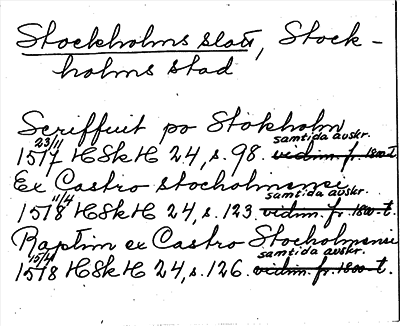 Stockholms slott, Stock-
holms stad
Scriffuit po Stokholm
23/11 samtida avskr.
1517 HSkH 24, s. 98. vidim. fr. 1800-t.
Ex Castro stocholmensi
11/4 samtida avskr.
1518 HSkH 24, s. 123. vidim. fr. 1800-t.
Raptim ex Castro Stocholmensi
15/4 samtida avskr.
1518 HSkH 24, s. 126. vidim. fr. 1800-t.